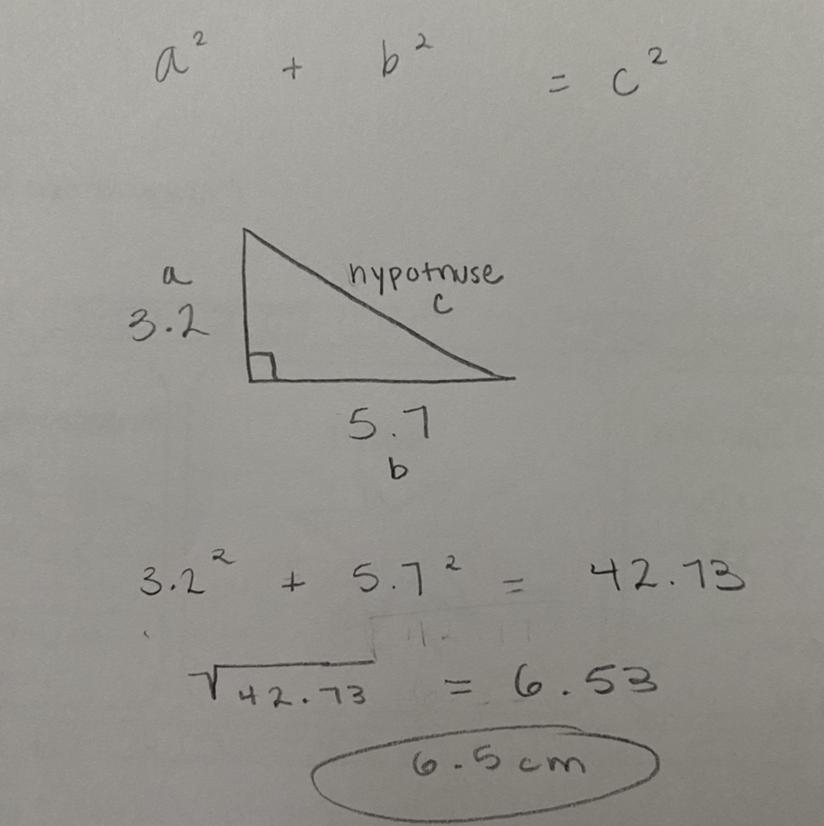 a² + b² = c²
a
hypotnuse
c
3.2
5.7
b
3.2² + 5.7² = 42.73
√42.73 = 6.53
6.5 cm